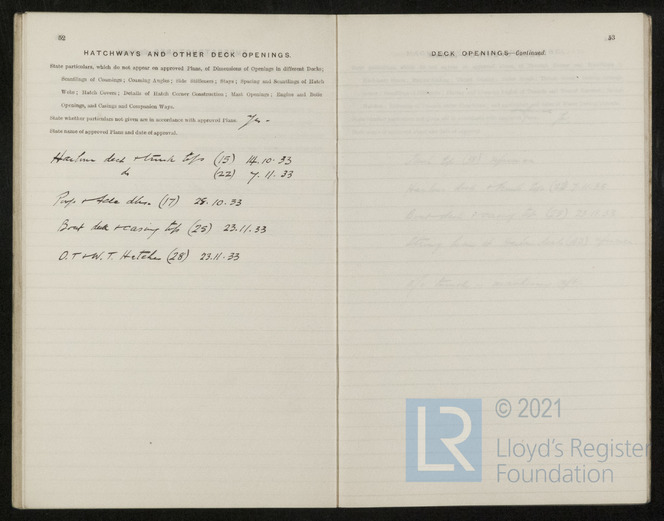 52
HATCHWAYS AND OTHER DECK OPENINGS.
State particulars, which do not appear on approved Plans, of Dimensions of Openings in different Decks;
Scantlings of Coamings; Coaming Angles; Side Stiffeners; Stays; Spacing and Scantlings of Hatch
Webs; Hatch Covers; Details of Hatch Corner Construction; Mast Openings; Engine and Boiler
Openings, and Casings and Companion Ways.
State whether particulars not given are in accordance with approved Plans. Yes -
State name of approved Plans and date of approval.
deck & trunk tops (15) 14.10.33
do (22) 7.11.33
Poop & (17) 28.10.33
Boat deck & casing top (25) 23.11.33
O.T & W.T. Hatches (28) 23.11.33
53
DECK OPENINGS—Continued.
LR © 2021
Lloyd's Register
Foundation